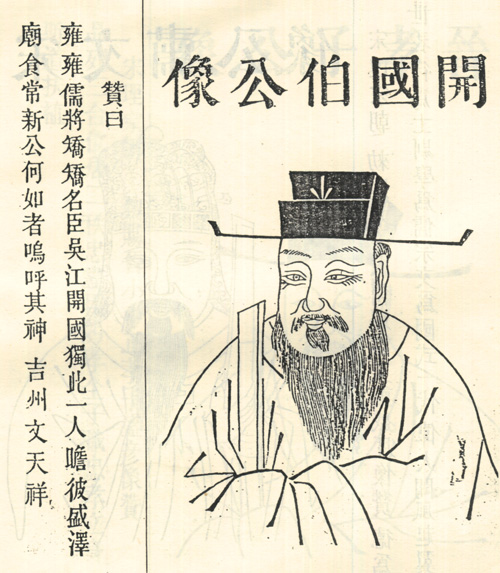 開國伯公像
贊曰
雍雍儒將矯矯名臣吳江開國獨此一人瞻彼盛澤
廟食常新公何如者嗚呼其神 吉州文天祥